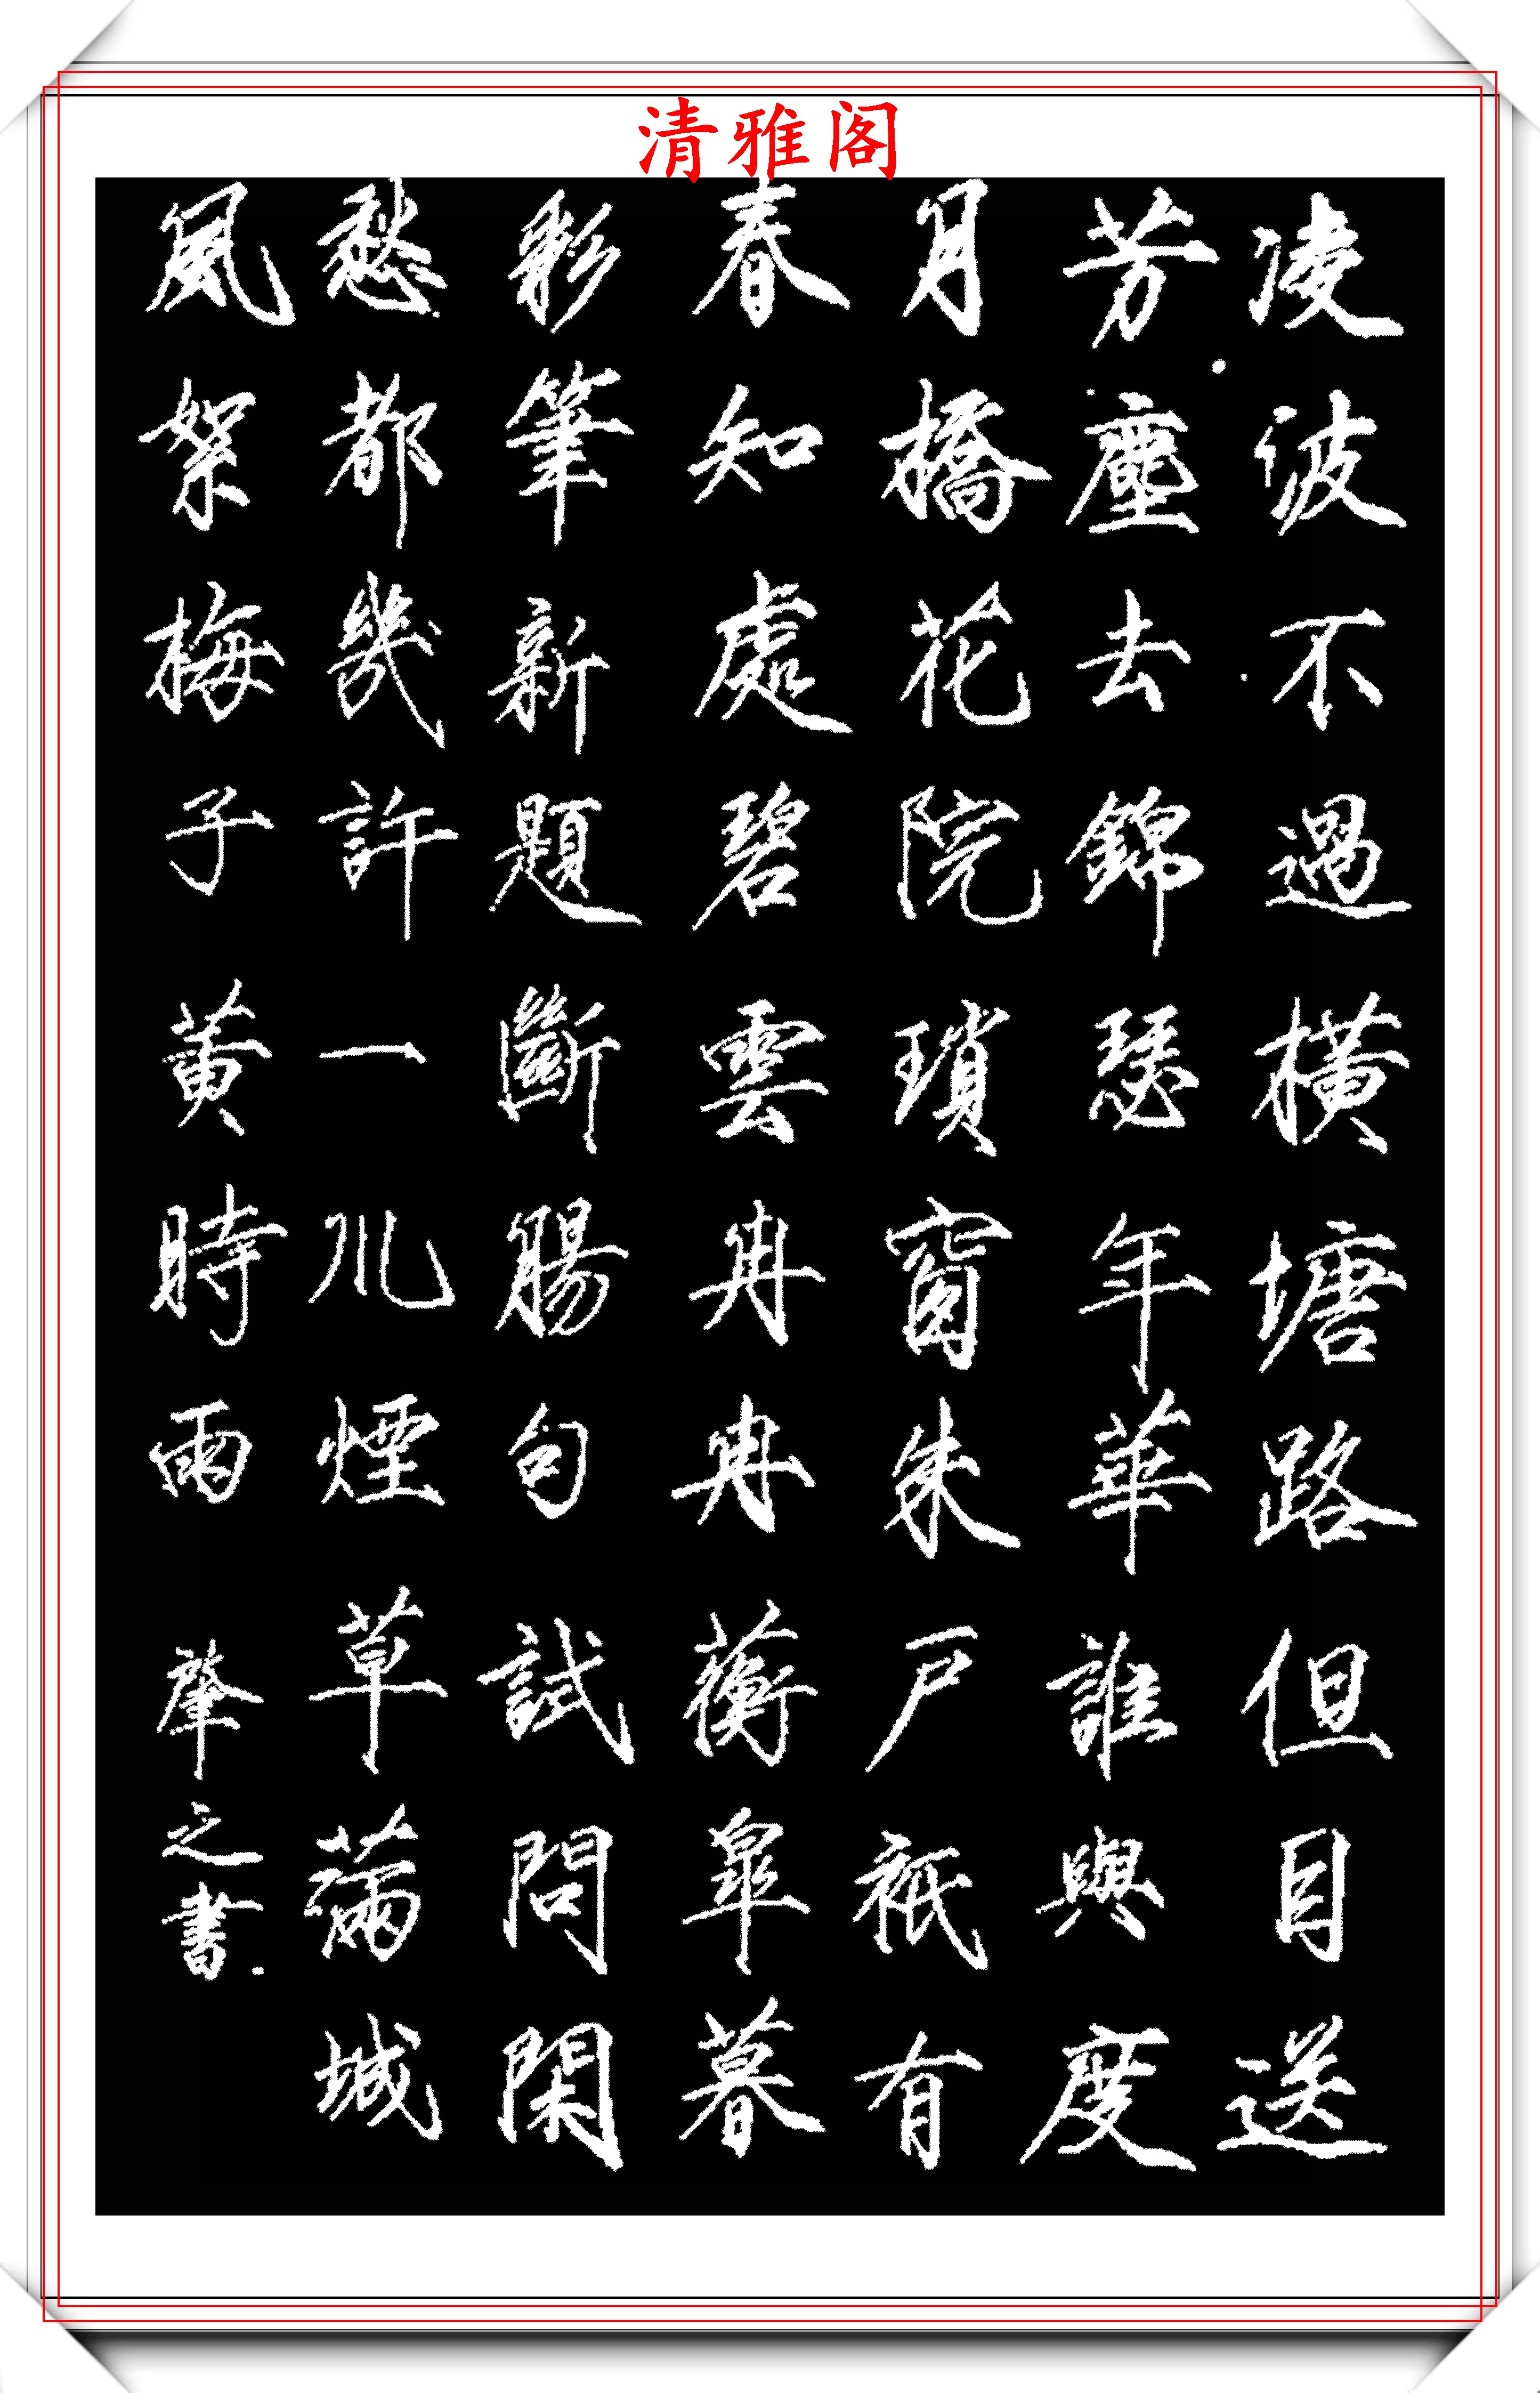 清雅阁
凌波不過橫塘路但目送
芳塵去錦瑟年華誰與度
月橋花院瑣窗朱戶祇有
春知處碧雲冉冉蘅皋暮
彩筆新題斷腸句試問閑
愁都幾許一川煙草滿城
風絮梅子黃時雨 肇之書